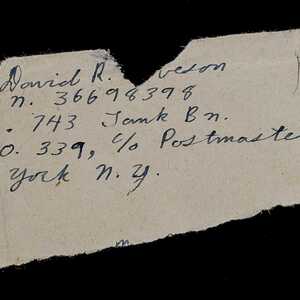 David R. veson
n. 36698398
. 743 Tank Bn.
O. 339, c/o Postmaste
York N.Y.